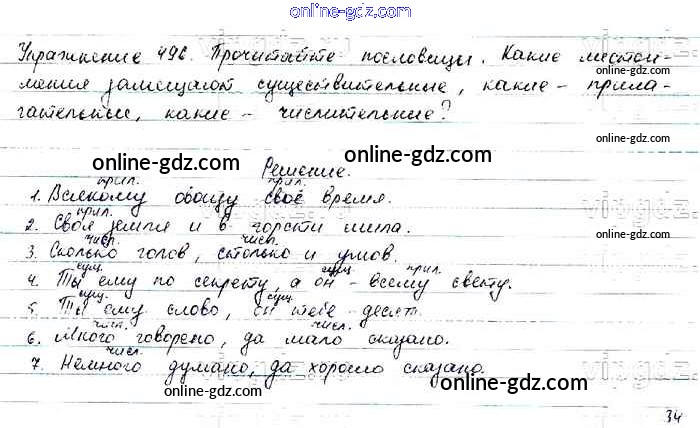 online-gdz.com
Упражнение 496. Прочитайте пословицы. Какие местои-
мения замещают существительные, какие - прила-
гательные, какие - числительные?
online-gdz.com
online-gdz.com
Решение.
прил. прил.
1. Всякому овощу своё время.
прил.
2. Своя земля и в горсти мила.
online-gdz.com
online-gdz.com
числ. числ.
3. Сколько голов, столько и умов.
сущ. сущ. прил.
4. Ты ему по секрету, а он - всему свету.
сущ. сущ.
5. Ты ему слово, он тебе десять.
online-gdz.com
числ. числ.
6. Много говорено, да мало сказано.
числ.
7. Немного думано, да хорошо сказано.
online-gdz.com
online-gdz.com
34